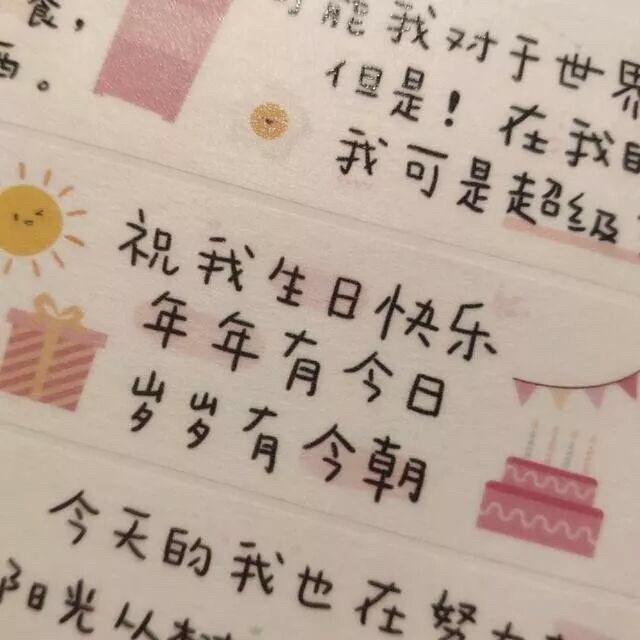 食，
能我对于世界
但是！在我
我可是超级
祝我生日快乐
年年有今日
岁岁有今朝
今天的我也在努
阳光从